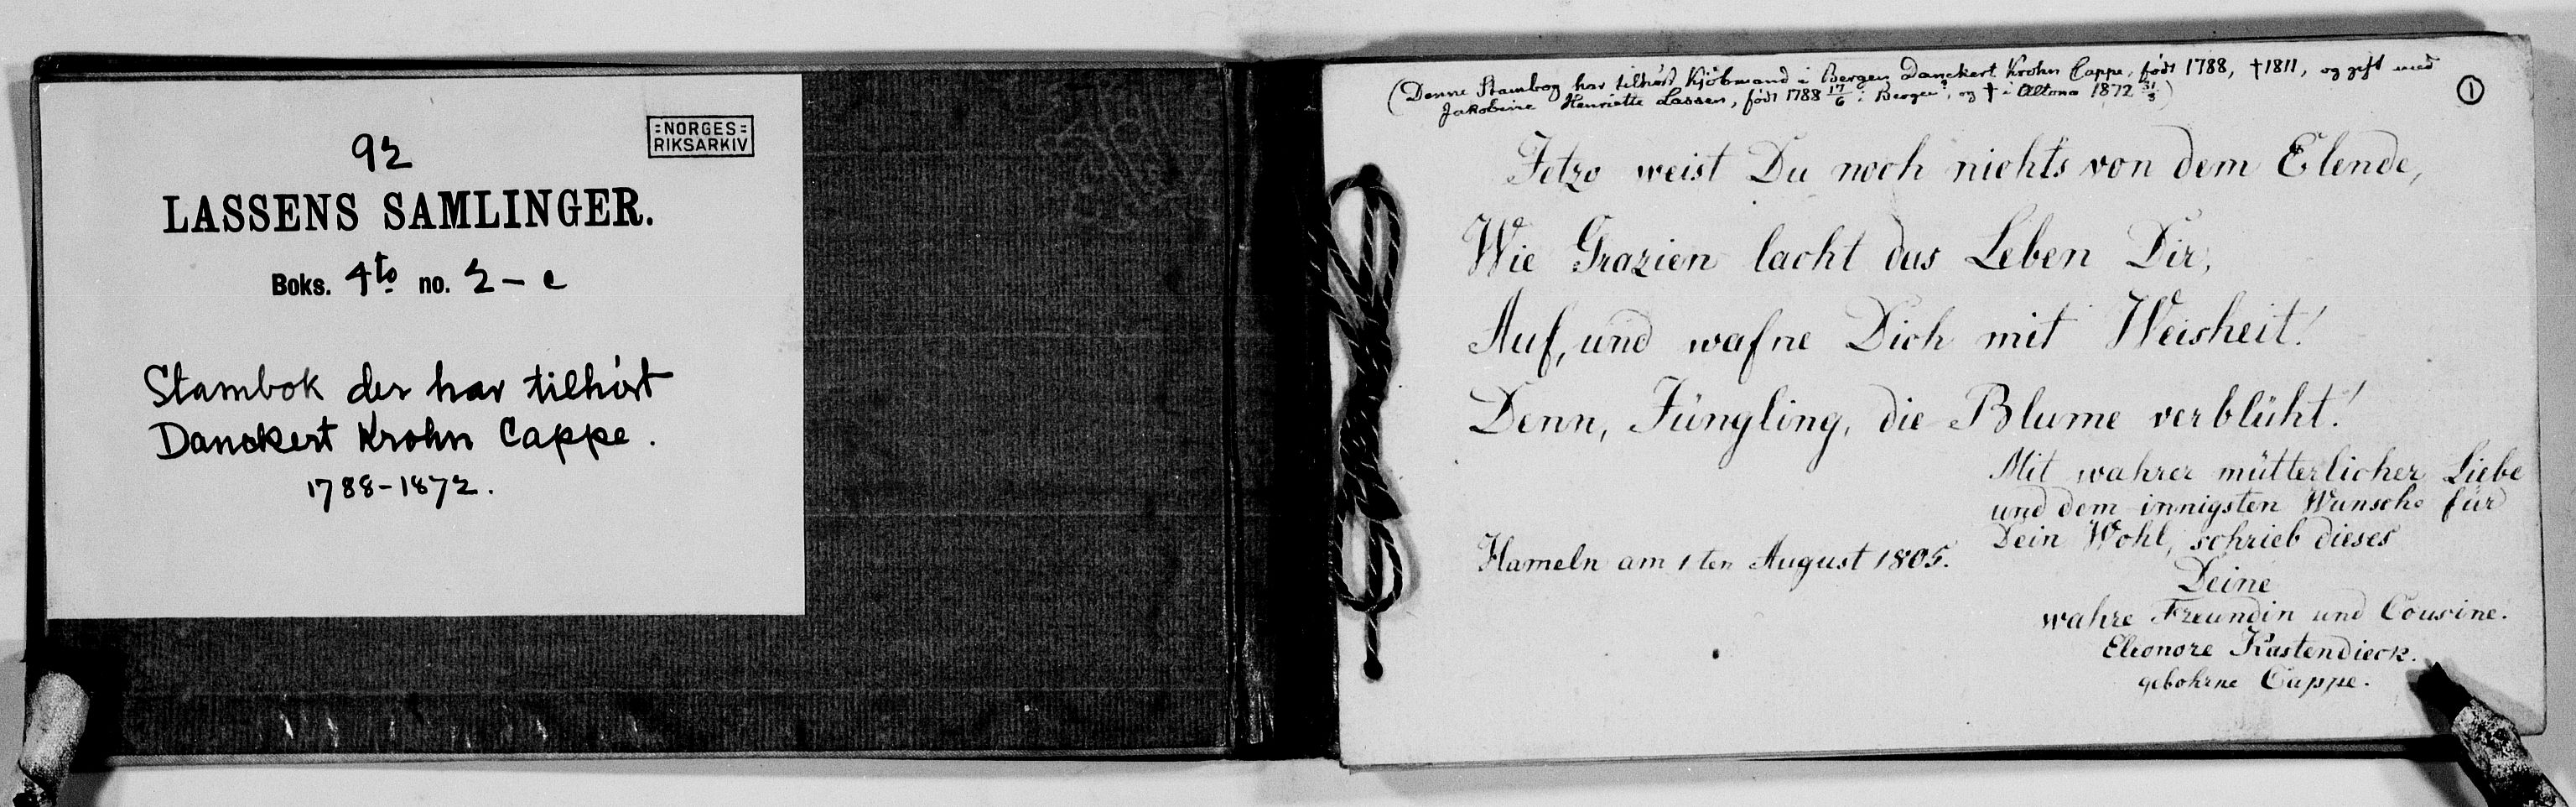 92
:NORGES:
RIKSARKIV
LASSENS SAMLINGER.
Boks. 4to no. 2 - c
Stambok der har tilhørt
Danckert Krohn Cappe.
1788-1872.
(Denne Stambog har tilhørt Kjöbmand i Bergen Danckert Krohn Cappe, født 1788, †1811, og gift med
Jakobine Henriette Lassen, født 1788 17/6 i Bergen, og † i Altona 1872 31/3)
1
Jetzo weist Du noch nichts von dem Elende,
Wie Grazien lacht das Leben Dir,
Auf, und wafne Dich mit Weisheit!
Denn, Jüngling, die Blume verblüht!
Mit wahrer mütterlicher Liebe
und dem innigsten Wunsche für
Dein Wohl, schrieb dieses
Hameln am 1ten August 1805.
Deine
wahre Freundin und Cousine.
Eleonore Kastendieck.
gebohrne Cappe.